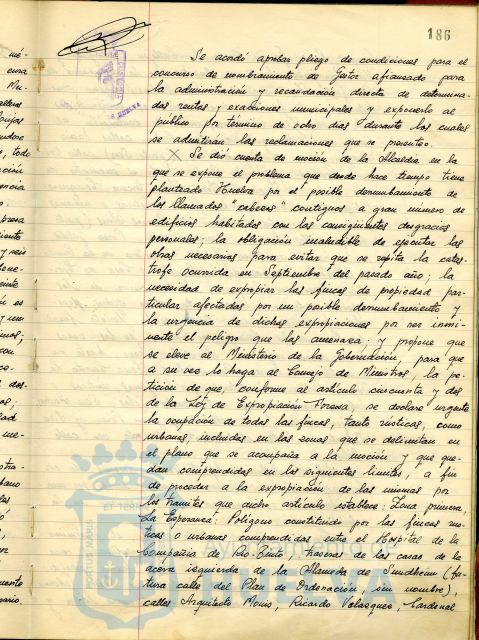 186
Se acordó aprobar pliego de condiciones para el
concurso de nombramiento de Gestor afianzado para
la administración y recaudación directa de determina-
das rentas y exacciones municipales y exponerlo al
público por término de ocho días durante los cuales
se admitirán las reclamaciones que se presenten.
Se dió cuenta de moción de la Alcaldía en la
que se expone el problema que desde hace tiempo tiene
planteado Huelva por el posible derrumbamiento de
los llamados "cabezos" contiguos a gran número de
edificios habitados con las consiguientes desgracias
personales; la obligación ineludible de ejecutar las
obras necesarias para evitar que se repita la catás-
trofe ocurrida en Septiembre del pasado año; la
necesidad de expropiar las fincas de propiedad par-
ticular afectadas por un posible derrumbamiento y
la urgencia de dichas expropiaciones por ser inmi-
nente el peligro que las amenaza; y propone que
se eleve al Ministerio de la Gobernación, para que
a su vez lo haga al Consejo de Ministros, la pe-
tición de que, conforme al artículo cincuenta y dos
de la Ley de Expropiación Forzosa, se declare urgente
la ocupación de todas las fincas, tanto rústicas, como
urbanas, incluidas en las zonas que se delimitan en
el plano que se acompaña a la moción y que que-
dan comprendidas en los siguientes límites, a fin
de proceder a la expropiación de las mismas por
los trámites que dicho artículo establece: Zona primera,
La Esperanza: Polígono constituido por las fincas rús-
ticas o urbanas comprendidas entre el Hospital de la
Compañía de Río-Tinto, traseras de las casas de la
acera izquierda de la Alameda de Sundheim (fu-
tura calle del Plan de Ordenación, sin nombre),
calles Arquitecto Monis, Ricardo Velázquez, Cardenal